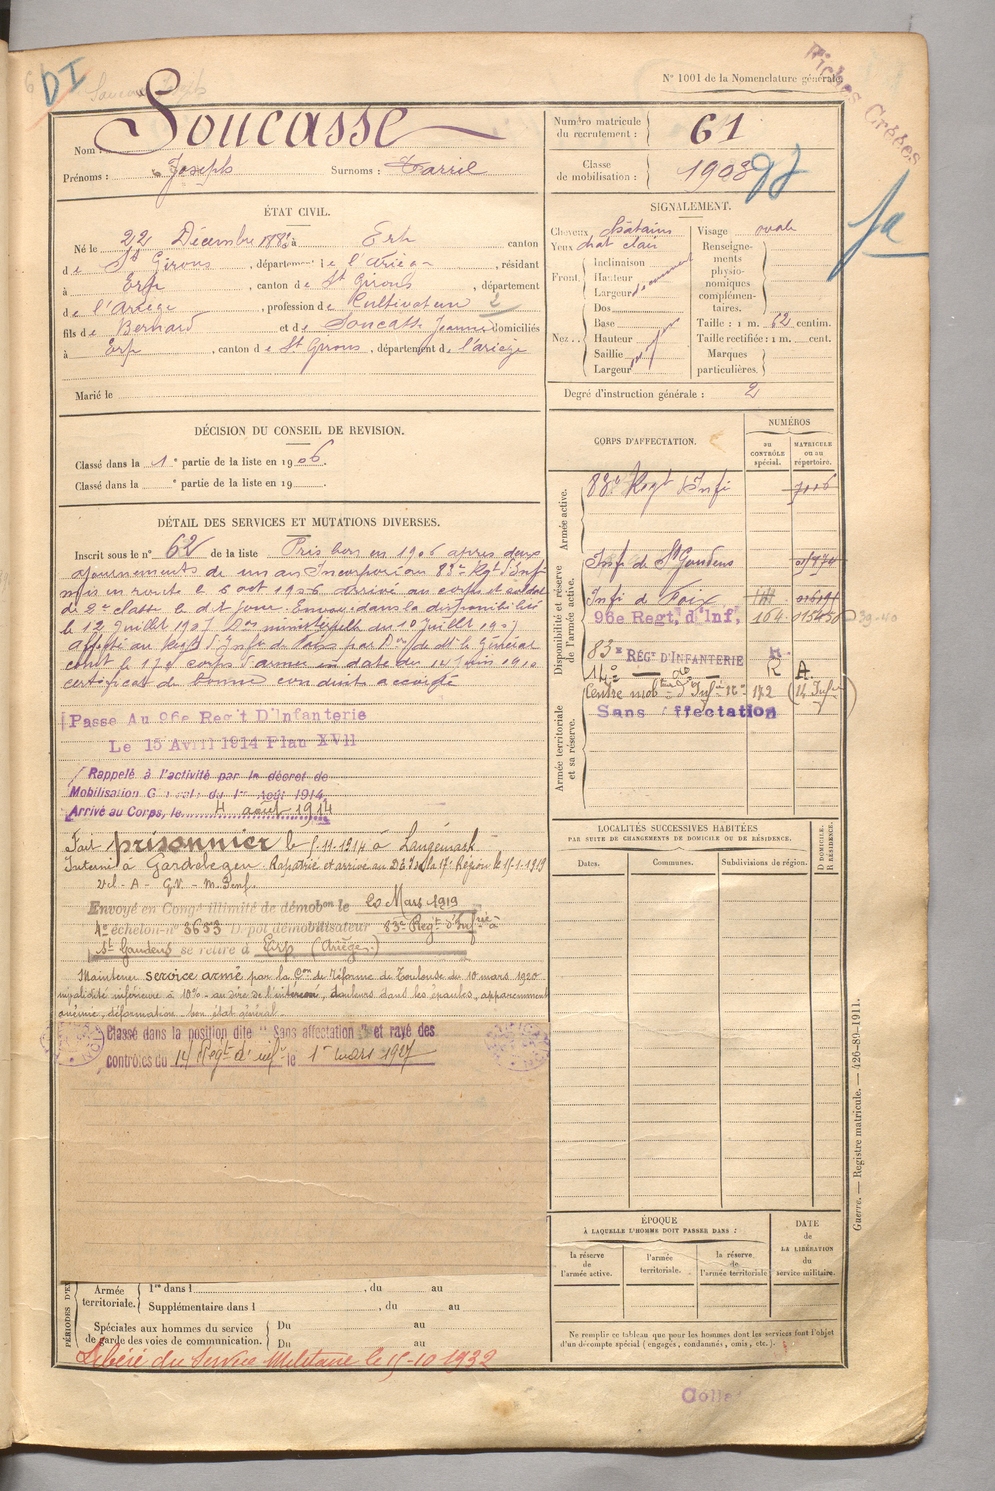 N° 1001 de la Nomenclature générale
Fiches Créées
DI
Nom : Soucasse
Prénoms : Joseph Surnoms : Tarriel
Numéro matricule du recrutement : 61
Classe de mobilisation : 1903
ÉTAT CIVIL.
Né le 22 Décembre 188 à Erp canton
de St Girons, département de l'Ariège, résidant
à Erp, canton de St Girons, département
de l'Ariège, profession de Cultivateur
fils de Bernard et de Soucasse Jeanne domiciliés
à Erp, canton de St Girons, département de l'ariège
Marié le
SIGNALEMENT.
Cheveux châtains Visage ovale
Yeux chat clair
Front. Inclinaison
Hauteur
Largeur
Nez. Dos
Base
Hauteur
Saillie
Largeur
Renseignements physionomiques complémentaires.
Taille : 1 m. 62 centim.
Taille rectifiée : 1 m. cent.
Marques particulières.
Degré d'instruction générale : 2
DÉCISION DU CONSEIL DE REVISION.
Classé dans la 1e partie de la liste en 1906.
Classé dans la e partie de la liste en 19 .
DÉTAIL DES SERVICES ET MUTATIONS DIVERSES.
Inscrit sous le n° 62 de la liste Pris bon en 1906 apres deux
ajournements de un an Incorporé au 83e Rgt d'Inf
mis en route le 6 oct 1906 arrivé au corps et soldat
de 2e classe le dit jour. Envoyé dans la disponibilité
le 12 Juillet 1907 Don ministérielle du 10 Juillet 1907
affecté au Regt d'Inf de Foix par Don de M. le Général
comt le 17e corps d'armée en date du 14 Juin 1910
certificat de bonne conduite accordé
Passe Au 96e Reg't D'Infanterie
Le 15 Avril 1914 Plan XVII
Rappelé à l'activité par le décret de
Mobilisation Générale du 1er Août 1914.
Arrivé au Corps, le 4 août 1914
Fait prisonnier le 5.11.1914 à Langemark
Interné à Gardelegen. Rapatrié et arrive au D.E. de la 17e Région le 15-1-1919
Envoyé en Congé illimité de démobon le 20 Mars 1919
4e échelon n° 3653 Dépot démobilisateur 83e Regt d'Infrie à
St Gaudens se retire à Erp (Ariège)
Maintenu service armé par la Con de Réforme de Toulouse du 10 mars 1920
invalidité inférieure à 10% - au dire de l'intéressé, douleurs dans les épaules, apparemment
anémie, déformation. bon état général.
Classé dans la position dite "Sans affectation" et rayé des
contrôles du 14 Regt d'inf le 1er mars 1927
PÉRIODES D'EX
Armée territoriale. 1re dans l , du au
Supplémentaire dans l , du au
Spéciales aux hommes du service de garde des voies de communication. Du au
Du au
Libéré du Service Militaire le 15-10-1932
CORPS D'AFFECTATION.
NUMÉROS
DU CONTRÔLE spécial.
MATRICULE ou au répertoire.
Armée active.
83e Regt d'Infie
Disponibilité et réserve de l'armée active.
Infie de St Gaudens
Infie de Foix
96e Regt, d'Inf, 104 015450
83e RÉGt D'INFANTERIE R
14e do R A
Centre mob d'Infie 172 (14 Infie)
Sans affectation
Armée territoriale et sa réserve.
LOCALITÉS SUCCESSIVES HABITÉES
PAR SUITE DE CHANGEMENTS DE DOMICILE OU DE RÉSIDENCE.
Dates. Communes. Subdivisions de région.
D DOMICILE. R RÉSIDENCE.
ÉPOQUE
À LAQUELLE L'HOMME DOIT PASSER DANS :
la réserve de l'armée active.
l'armée territoriale.
la réserve de l'armée territoriale
DATE de LA LIBÉRATION du service militaire.
Ne remplir ce tableau que pour les hommes dont les services font l'objet
d'un décompte spécial (engagés, condamnés, omis, etc.).
Guerre. — Registre matricule. — 426-89-1911.